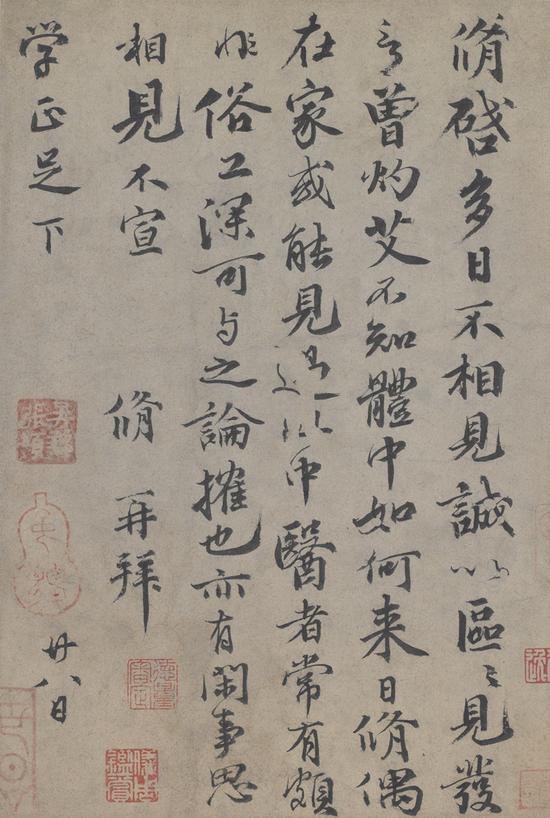 脩啓多日不相見誠以區〻見發
言曾灼艾不知體中如何来日脩偶
在家或能見過此中醫者常有頗
非俗工深可与之論搉也亦有閑事思
相見不宣 脩再拜
学正足下
廿八日